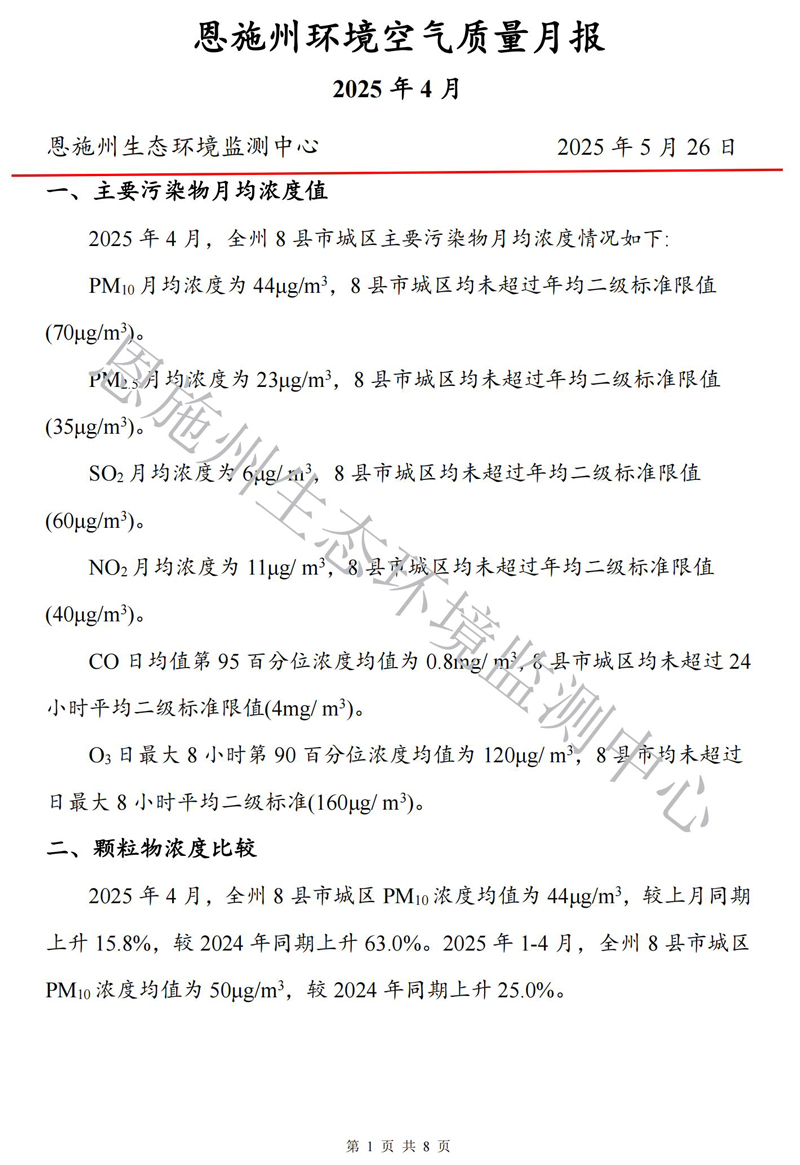 恩施州环境空气质量月报
2025 年 4 月
恩施州生态环境监测中心 2025 年 5 月 26 日
一、主要污染物月均浓度值
2025 年 4 月，全州 8 县市城区主要污染物月均浓度情况如下:
PM₁₀ 月均浓度为 44μg/m³，8 县市城区均未超过年均二级标准限值
(70μg/m³)。
PM₂.₅ 月均浓度为 23μg/m³，8 县市城区均未超过年均二级标准限值
(35μg/m³)。
SO₂ 月均浓度为 6μg/ m³，8 县市城区均未超过年均二级标准限值
(60μg/m³)。
NO₂ 月均浓度为 11μg/ m³，8 县市城区均未超过年均二级标准限值
(40μg/m³)。
CO 日均值第 95 百分位浓度均值为 0.8mg/ m³, 8 县市城区均未超过 24
小时平均二级标准限值(4mg/ m³)。
O₃ 日最大 8 小时第 90 百分位浓度均值为 120μg/ m³，8 县市均未超过
日最大 8 小时平均二级标准(160μg/ m³)。
二、颗粒物浓度比较
2025 年 4 月，全州 8 县市城区 PM₁₀ 浓度均值为 44μg/m³，较上月同期
上升 15.8%，较 2024 年同期上升 63.0%。2025 年 1-4 月，全州 8 县市城区
PM₁₀ 浓度均值为 50μg/m³，较 2024 年同期上升 25.0%。
第 1 页 共 8 页
恩施州生态环境监测中心